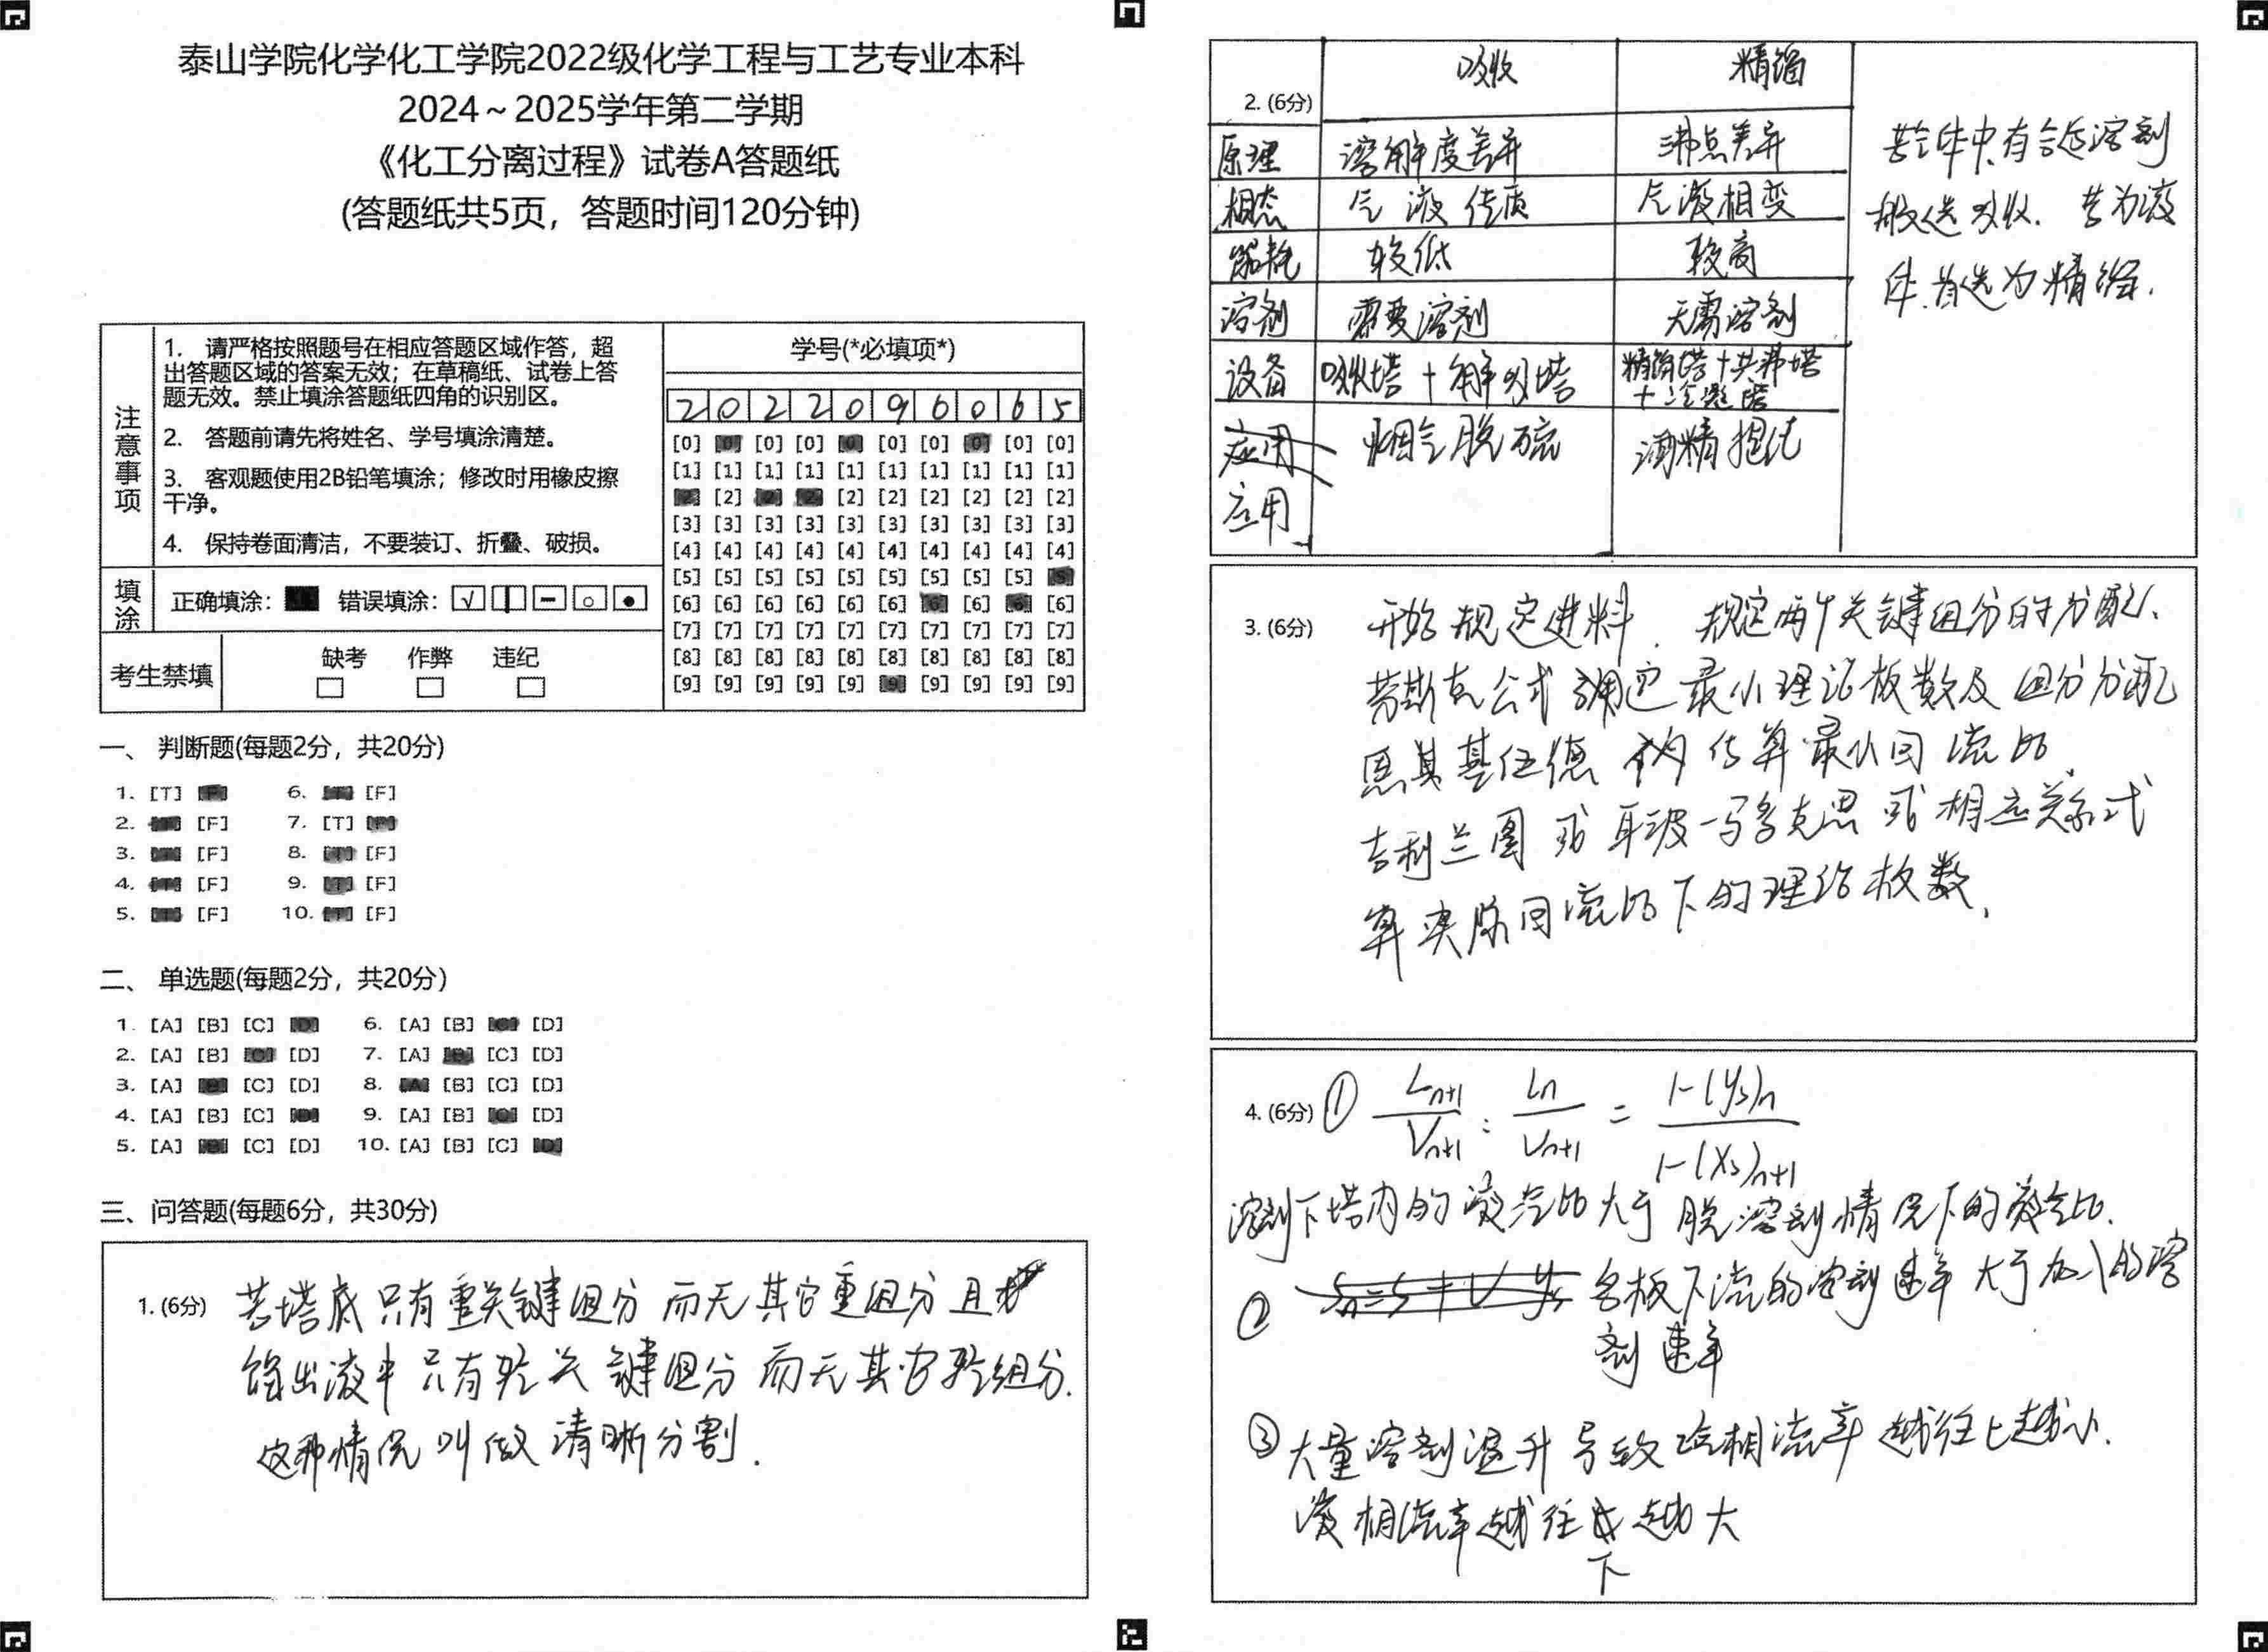 泰山学院化学化工学院2022级化学工程与工艺专业本科
2024～2025学年第二学期
《化工分离过程》试卷A答题纸
(答题纸共5页，答题时间120分钟)
注意事项
1. 请严格按照题号在相应答题区域作答，超
出答题区域的答案无效；在草稿纸、试卷上答
题无效。禁止填涂答题纸四角的识别区。
2. 答题前请先将姓名、学号填涂清楚。
3. 客观题使用2B铅笔填涂；修改时用橡皮擦
干净。
4. 保持卷面清洁，不要装订、折叠、破损。
填涂
正确填涂： 错误填涂：
考生禁填
缺考 作弊 违纪
学号(*必填项*)
2 0 2 2 0 9 6 0 6 5
[0] [0] [0] [0] [0] [0] [0] [0] [0] [0]
[1] [1] [1] [1] [1] [1] [1] [1] [1] [1]
[2] [2] [2] [2] [2] [2] [2] [2] [2] [2]
[3] [3] [3] [3] [3] [3] [3] [3] [3] [3]
[4] [4] [4] [4] [4] [4] [4] [4] [4] [4]
[5] [5] [5] [5] [5] [5] [5] [5] [5] [5]
[6] [6] [6] [6] [6] [6] [6] [6] [6] [6]
[7] [7] [7] [7] [7] [7] [7] [7] [7] [7]
[8] [8] [8] [8] [8] [8] [8] [8] [8] [8]
[9] [9] [9] [9] [9] [9] [9] [9] [9] [9]
一、 判断题(每题2分，共20分)
1. [T] [F] 6. [T] [F]
2. [T] [F] 7. [T] [F]
3. [T] [F] 8. [T] [F]
4. [T] [F] 9. [T] [F]
5. [T] [F] 10. [T] [F]
二、 单选题(每题2分，共20分)
1. [A] [B] [C] [D] 6. [A] [B] [C] [D]
2. [A] [B] [C] [D] 7. [A] [B] [C] [D]
3. [A] [B] [C] [D] 8. [A] [B] [C] [D]
4. [A] [B] [C] [D] 9. [A] [B] [C] [D]
5. [A] [B] [C] [D] 10. [A] [B] [C] [D]
三、问答题(每题6分，共30分)
1. (6分) 若塔底只有重关键组分而无其它重组分且
馏出液中只有轻关键组分而无其它轻组分.
这种情况叫做清晰分割.
2. (6分) 吸收 精馏
原理 溶解度差异 沸点差异
相态 气液传质 气液相变
能耗 较低 较高
溶剂 需要溶剂 无需溶剂
设备 吸收塔+解吸塔 精馏塔+共沸塔
+冷凝塔
应用 烟气脱硫 酒精提纯
应用
若气体中有合适溶剂
般选吸收. 若为液
体.首选为精馏.
3. (6分) 开始规定进料. 规定两个关键组分的分配、
芬斯克公式确定最小理论板数及组分分配
恩其基伍德 估算最小回流比.
吉利兰图或耳波-马多克思或相应关系式
算实际回流比下的理论板数.
4. (6分) ① Ln+1/Vn+1 : Ln/Vn+1 = 1-(ys)n/1-(xs)n+1
溶剂下塔内的液汽比大于脱溶剂情况下的液气比.
② 各板下流的溶剂速率大于加入的溶
剂速率
③大量溶剂温升导致汽相流率越往上越小.
液相流率越往下越大